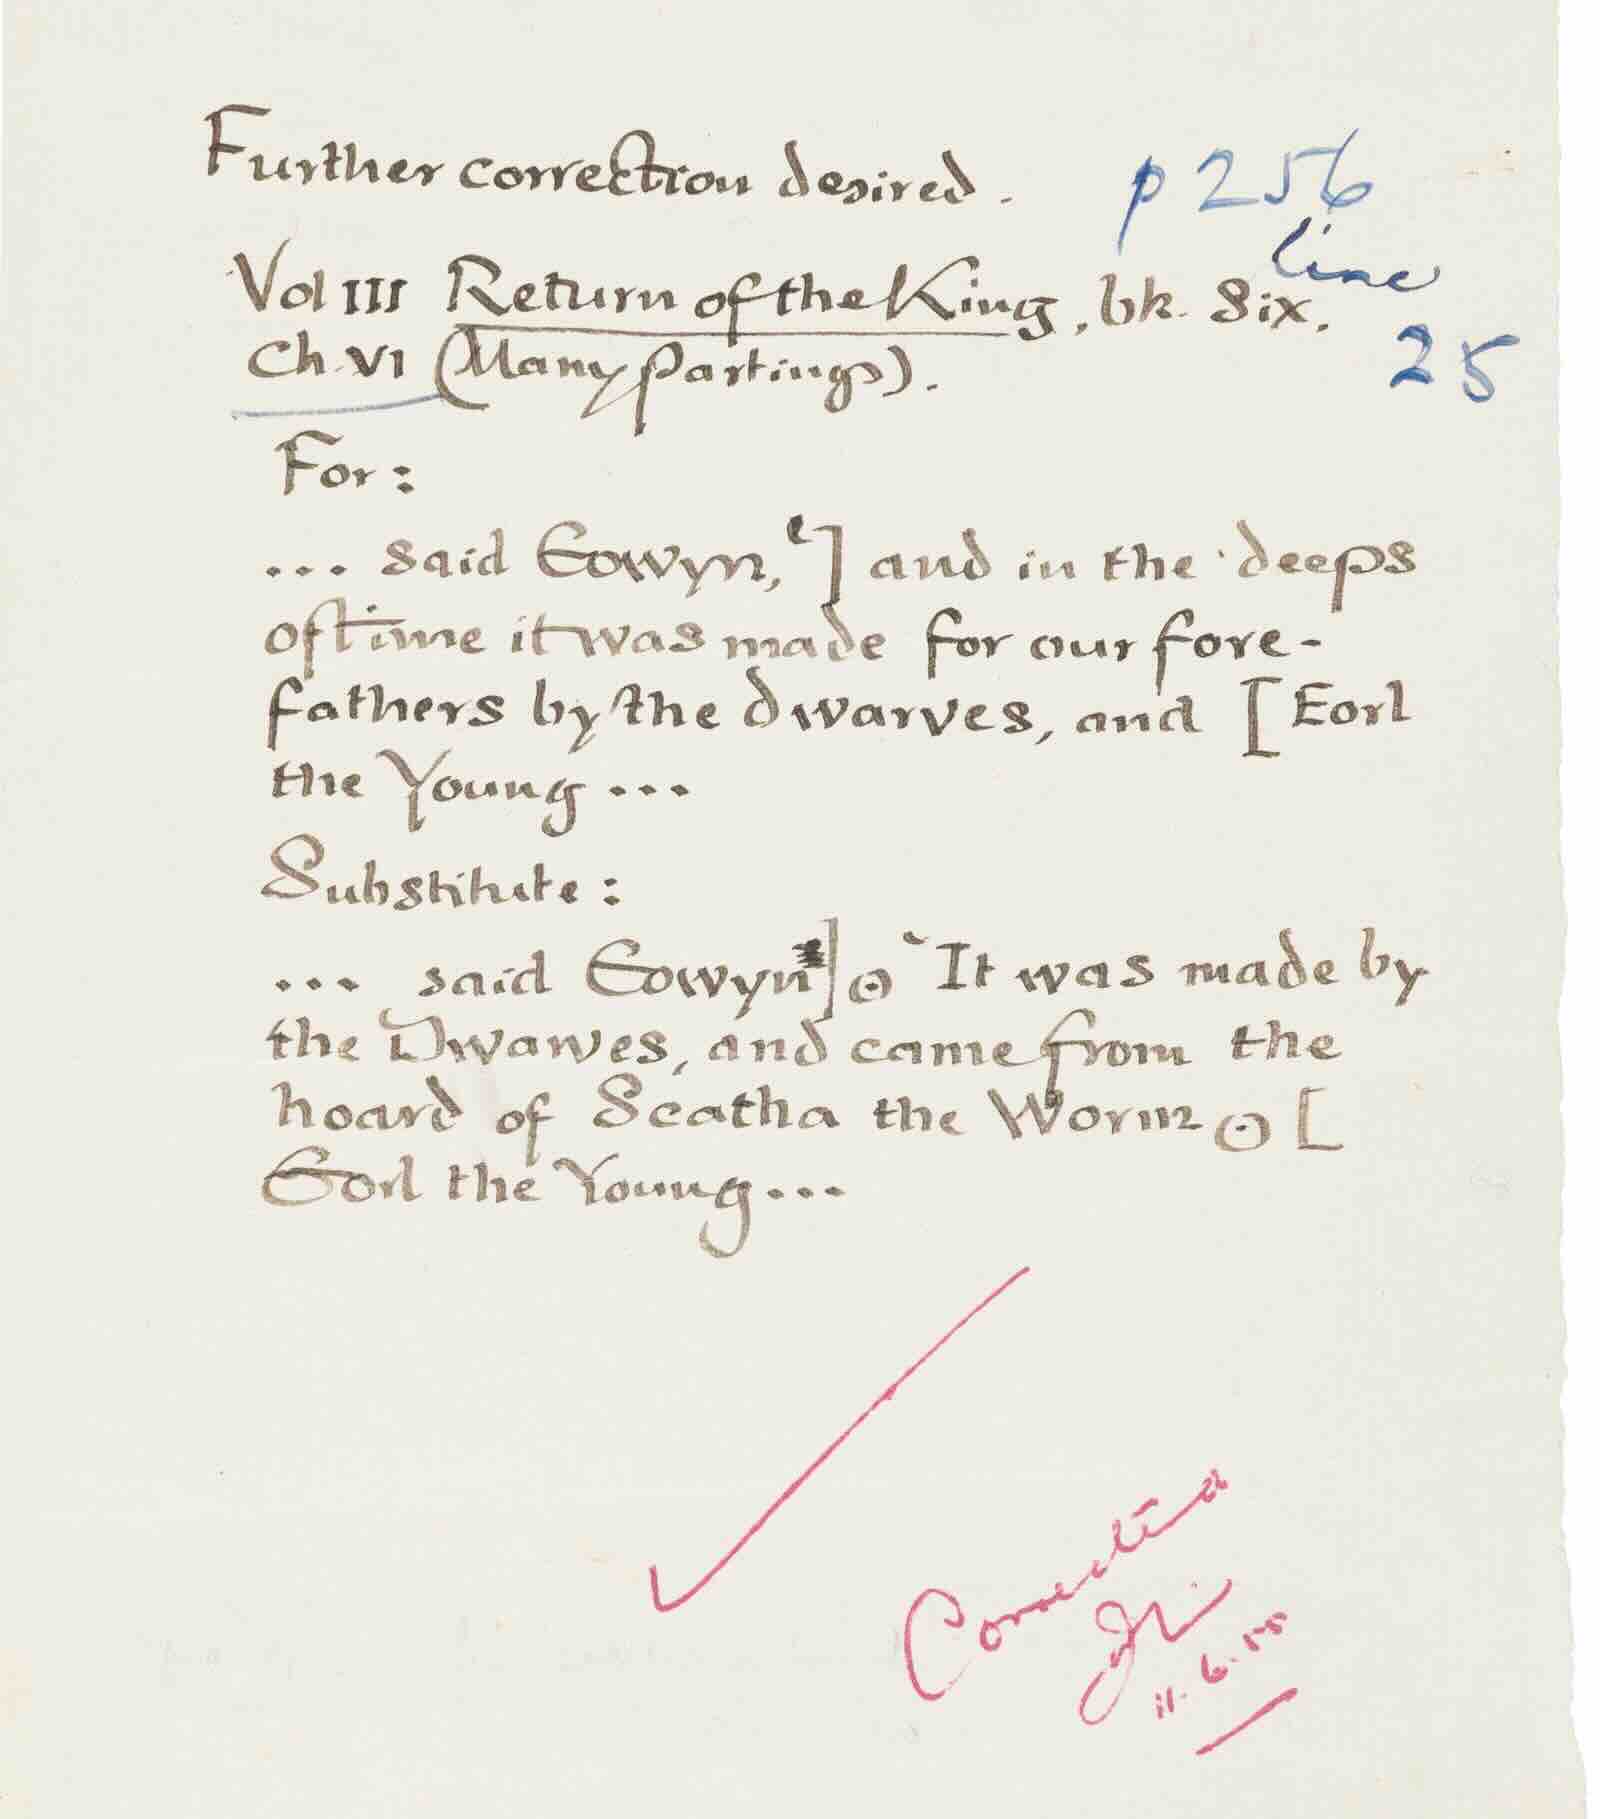 Further correction desired. p 256
line
Vol III Return of the King, bk. Six.
25
Ch. VI (Many Partings).
For:
... said Eowyn, ‘] and in the deeps
of time it was made for our fore-
fathers by the dwarves, and [ Eorl
the Young ...
Substitute:
... said Eowyn] ⊙ ‘It was made by
the Dwarves, and came from the
hoard of Scatha the Worm ⊙ [
Eorl the Young ...
Corrected
11.6.55